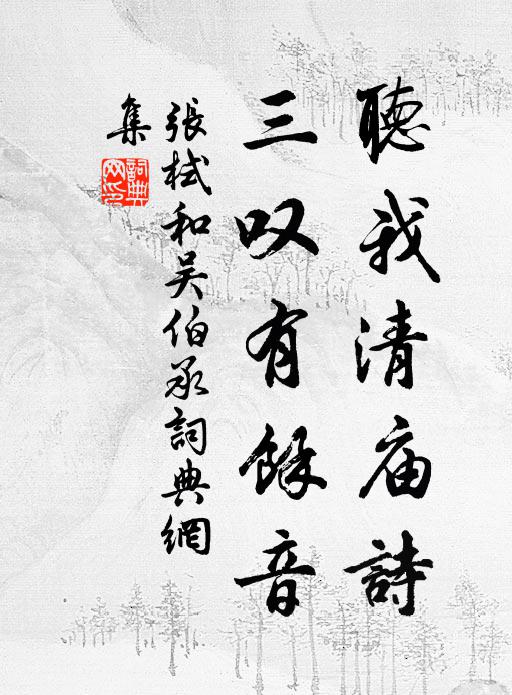 聽我清庙詩
三叹有餘音
張栻和吴伯承詞典網
集
詞典
网印